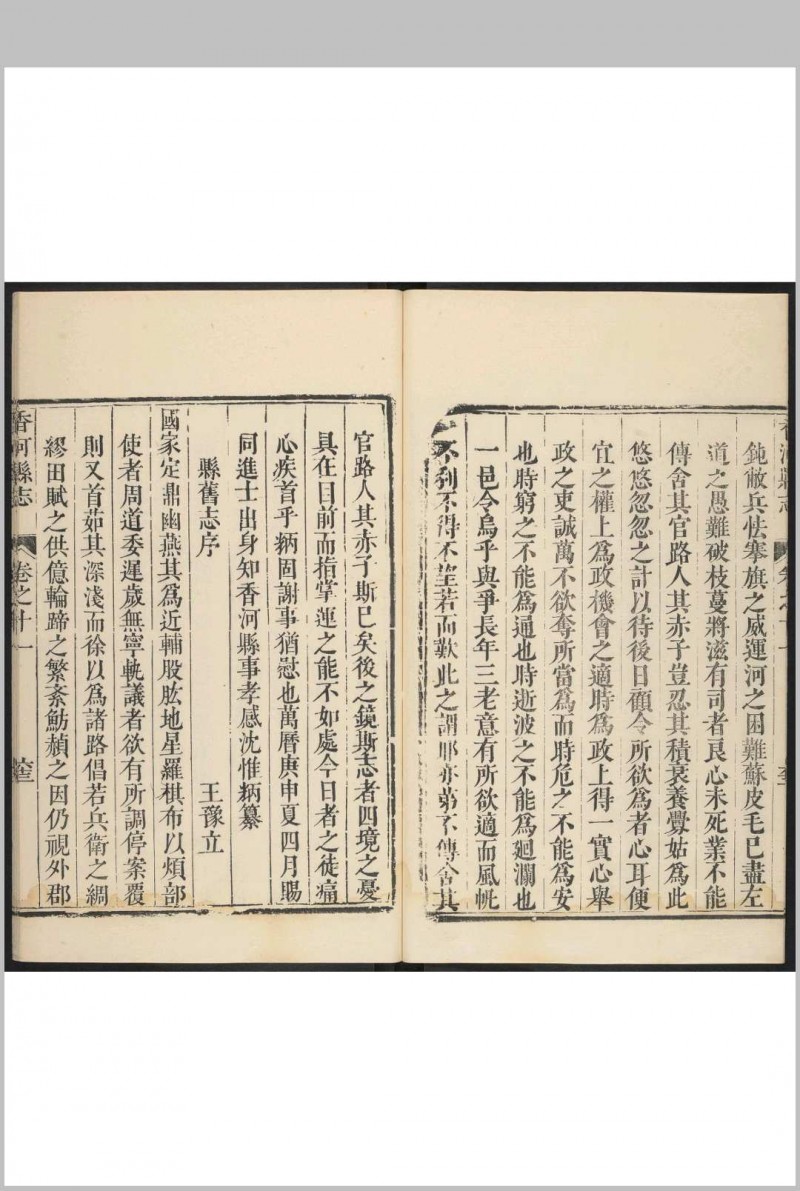 鈍敝兵怯搴旗之威運河之困難蘇皮毛已盡左
道之愚難破枝蔓將滋有司者良心未死業不能
傳舍其官路人其赤子豈忍其積衰養釁姑爲此
悠悠忽忽之計以待後日顧令所欲爲者心耳便
宜之權上爲政機會之適時爲政上得一實心舉
政之吏誠萬不欲奪所當爲而時危之不能爲安
也時窮之不能爲通也時逝波之不能爲廻瀾也
一邑令烏乎與爭長年三老意有所欲適而風帆
不利不得不望若而歎此之謂耶亦第不傳舍其
官路人其赤子斯已矣後之鏡斯志者四境之憂
具在目前而指掌運之能不如處今日者之徒痛
心疾首乎炳固謝事猶慰也萬曆庚申夏四月賜
同進士出身知香河縣事孝感沈惟炳纂
縣舊志序
王豫立
國家定鼎幽燕其爲近輔股肱地星羅棋布以煩部
使者周道委遲歲無寧軌議者欲有所調停案覆
則又首茹其深淺而徐以爲諸路倡若兵衛之綢
繆田賦之供億輪蹄之繁紊魴赬之因仍視外郡
香河縣志
卷之十一